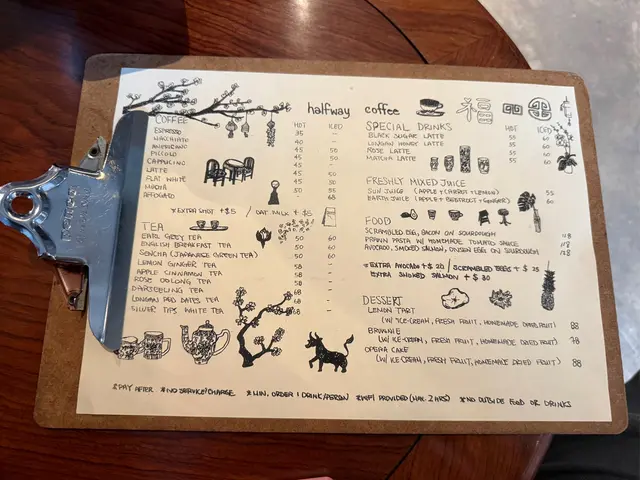 halfway coffee
COFFEE HOT ICED
ESPRESSO 35 -
MACCHIATO 40 -
AMERICANO 45 50
PICCOLO 45 -
CAPPUCINO 45 50
LATTE 45 50
FLAT WHITE 45 -
MOCHA 50 55
AFFOGATO 68
* EXTRA SHOT +$5 / OAT MILK + $5
TEA
EARL GREY TEA 50 60
ENGLISH BREAKFAST TEA 50 60
SENCHA (JAPANESE GREEN TEA) 50 60
LEMON GINGER TEA 58 -
APPLE CINNAMON TEA 58 -
ROSE OOLONG TEA 58 -
DARJEELING TEA 68 -
LONGAN RED DATES TEA 68 -
SILVER TIPS WHITE TEA 68 -
SPECIAL DRINKS HOT ICED
BLACK SUGAR LATTE 55 60
LONGAN HONEY LATTE 55 60
ROSE LATTE 55 60
MATCHA LATTE 55 60
FRESHLY MIXED JUICE
SUN JUNG (APPLE + CARROT + LEMON) 55
EARTH JUICE (APPLE + BEETROOT + GINGER) 60
FOOD
SCRAMBLED EGG, BACON ON SOURDOUGH
PRAWN PASTA W/ HOMEMADE TOMATO SAUCE 118
AVOCADO, SMOKED SALMON, ONSEN EGG ON SOURDOUGH 128
* EXTRA AVOCADO + $ 20 / SCRAMBLED EGGS + $ 25
EXTRA SMOKED SALMON + $ 30
DESSERT
LEMON TART
(W/ ICE-CREAM, FRESH FRUIT, HOMEMADE DRIED FRUIT) 88
BROWNIE
(W/ ICE CREAM, FRESH FRUIT, HOMEMADE DRIED FRUIT) 78
OPERA CAKE
(W/ ICE CREAM, FRESH FRUIT, HOMEMADE DRIED FRUIT) 88
* PAY AFTER * NO SERVICE CHARGE * MIN. ORDER 1 DRINK/PERSON * WIFI PROVIDED (MAX. 2 HRS) * NO OUTSIDE FOOD OR DRINKS